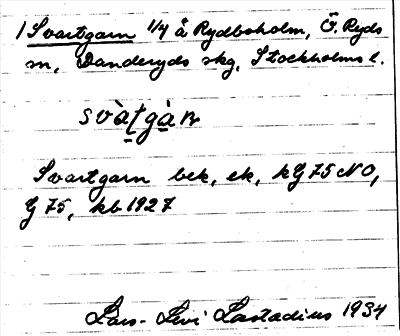 1 Svartgarn 1/4 å Rydboholm, Ö. Ryds
sn, Danderyds skg, Stockholms l.
svàṭgàṇ
Svartgarn bek, ek, kG 75 NO,
G 75, kb 1927
Lars-Levi Læstadius 1934